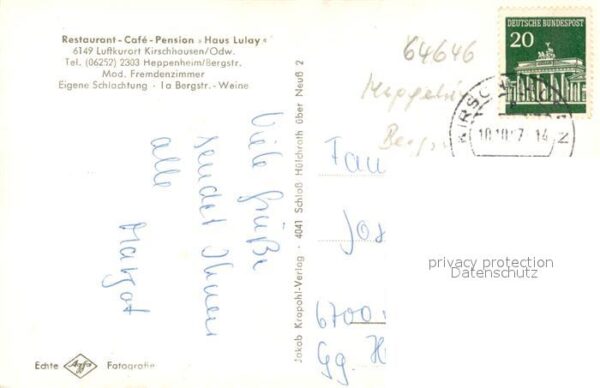 Restaurant - Café - Pension „Haus Lulay"
6149 Luftkurort Kirschhausen/Odw.
Tel. (06252) 2303 Heppenheim/Bergstr.
Mod. Fremdenzimmer
Eigene Schlachtung - Ia Bergstr.- Weine
Viele Grüße
sendet Ihnen
alle
Margot
Jakob Krapohl-Verlag - 4041 Schloß Hülchrath über Neuß 2
DEUTSCHE BUNDESPOST
20
64646
Fam
Jos
6700
Gg. H
privacy protection
Datenschutz
Echte Agfa Fotografie